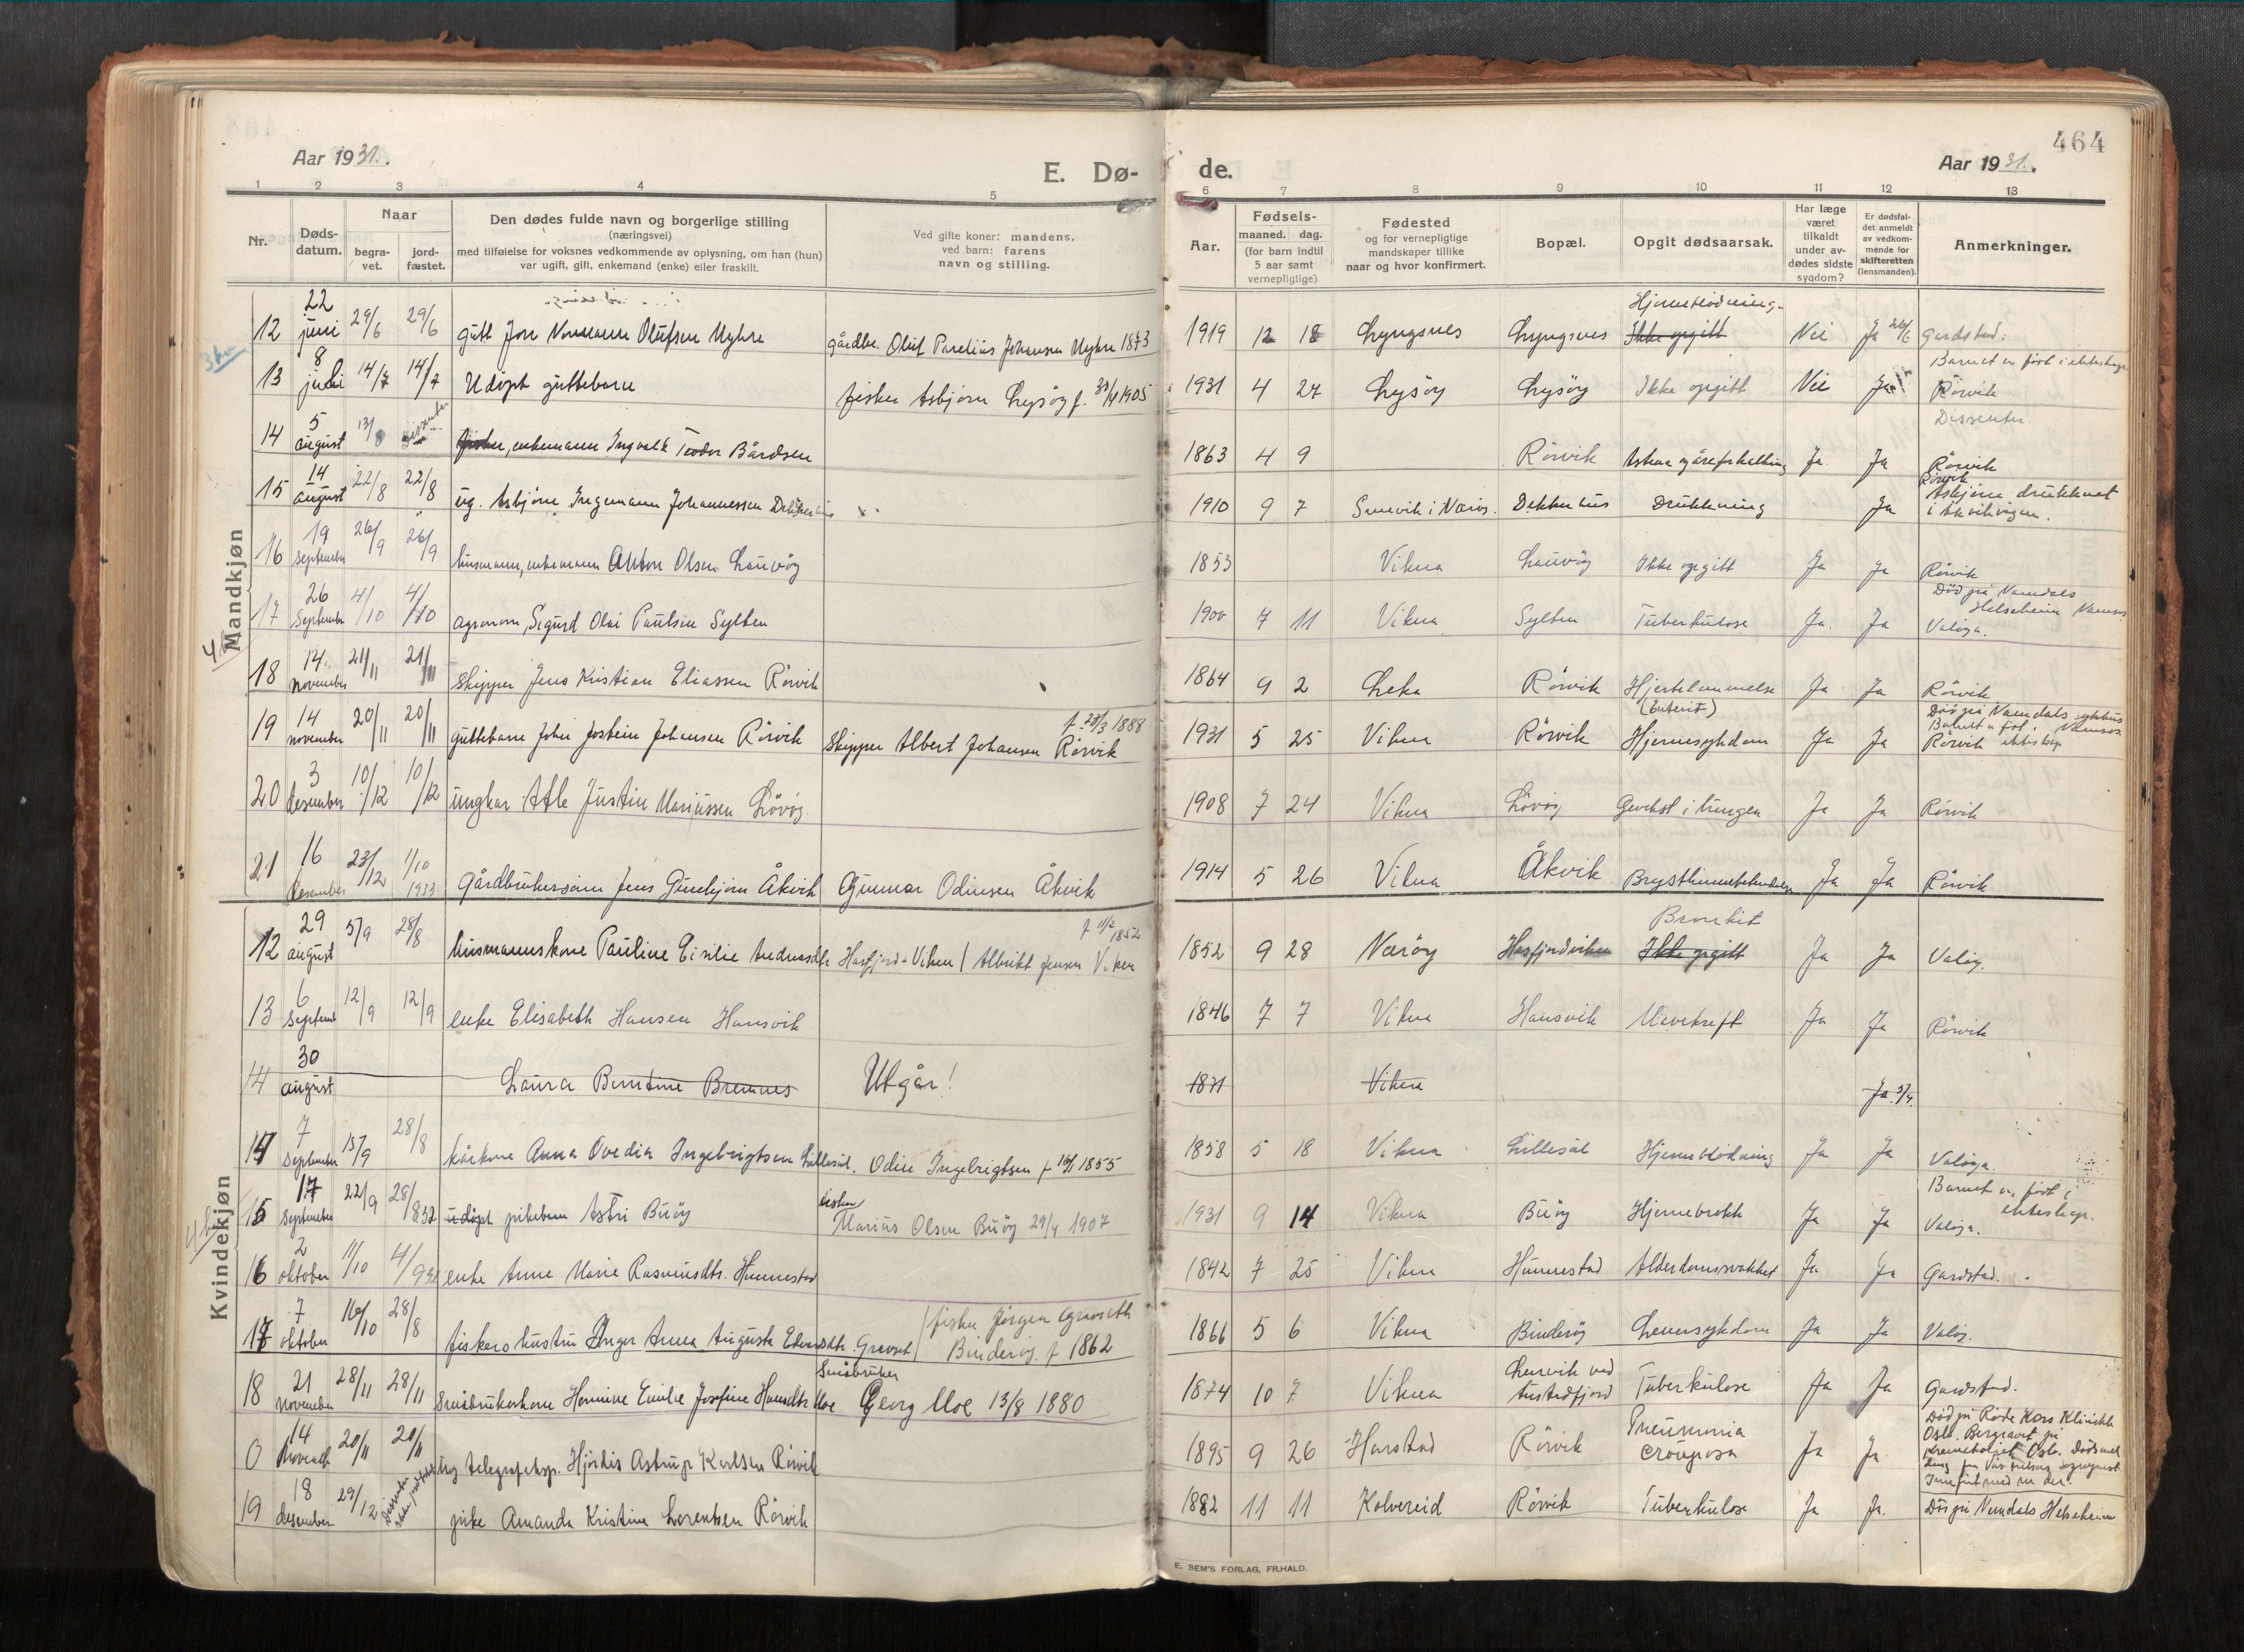 464
Aar 1931.
E. Dø-
de.
Aar 1931.
1 2 3 4 5 6 7 8 9 10 11 12 13
Nr.
Døds-
datum.
Naar
begra-
vet.
jord-
fæstet.
Den dødes fulde navn og borgerlige stilling
(næringsvei)
med tilføielse for voksnes vedkommende av oplysning, om han (hun)
var ugift, gift, enkemand (enke) eller fraskilt.
Ved gifte koner: mandens,
ved barn: farens
navn og stilling.
Aar.
Fødsels-
maaned. dag.
(for barn indtil
5 aar samt
vernepligtige)
Fødested
og for vernepligtige
mandskaper tillike
naar og hvor konfirmert.
Bopæl.
Opgit dødsaarsak.
Har læge
været
tilkaldt
under av-
dødes sidste
sygdom?
Er dødsfal-
det anmeldt
av vedkom-
mende for
skifteretten
(lensmanden).
Anmerkninger.
Mandkjøn
12 22 juni 29/6 29/6 gutt Jon Normann Olufsen Myhre gårdbr. Oluf Parelius Johansen Myhre 1873 1919 12 18 Lyngsnes Lyngsnes Hjerneblødning Ikke opgitt Nei Ja 26/6 Gardstad.
13 8 juli 14/7 14/7 Udøpt guttebarn fisker Asbjørn Lysøy f. 30/4 1905 1931 4 27 Lysøy Lysøy Ikke opgitt Nei Ja Barnet er født i ekteskap Rørvik
14 5 august 13/8 Dissenter fisker, enkemann Ingvald Teodor Bårdsen 1863 4 9 Rørvik Astma og åreforkalkning Ja Ja Dissenter. Rørvik
15 14 august 22/8 22/8 ug. Asbjørn Ingemann Johannessen Dekkerhus 1910 9 7 Snevik i Nærøy. Dekkerhus Drukkning Ja Rørvik Asbjørn druknet i Akvikvågen.
16 19 September 26/9 26/9 husmann, enkemann Anton Olsen Lauvøy 1853 Vikna Lauvøy Ikke opgitt Ja Ja Rørvik
17 26 September 4/10 4/10 agronom, Sigurd Olai Paulsen Sylten 1900 7 11 Vikna Sylten Tuberkulose Ja. Ja Død på Namdals Helseheim Namsos. Valøya.
18 14. november 21/11 21/11 Skipper Jens Kristian Eliassen Rørvik 1864 9 2 Leka Rørvik Hjertelammelse Ja Ja Rørvik
19 14 november 20/11 20/11 guttebarn John Jostein Johansen Rørvik Skipper Albert Johansen Rørvik f. 23/3 1888 1931 5 25 Vikna Rørvik (Enterit) Hjernesykdom Ja Ja Død på Namdals sykehus Namsos Barnet er født i ekteskap Rørvik
20 3 desember 10/12 10/12 ungkar Atle Justin Mariussen Løvøy 1908 7 24 Vikna Løvøy Gevekst i lungen Ja Ja Rørvik
21 16 desember 23/12 1/10 1933 Gårdbrukersønn Jens Gunbjørn Åkvik Gunnar Odinsen Åkvik 1914 5 26 Vikna Åkvik Brysthinnebetendelse Ja Ja Rørvik
Kvindekjøn
12 29 august 5/9 28/8 husmannskone Pauline Eisilie Andreasdtr Hasfjord-Viken / Albrikt Jensen Viken f 11/2 1852 1852 9 28 Nærøy Hasfjordviken Bronkit Ikke opgitt Ja Ja Valøy.
13 6 Septemb 12/9 12/9 enke Elisabeth Hansen Hansvik 1846 7 7 Vikna Hansvik Mavekreft Ja Ja Rørvik
14 30 august Laura Berntine Bremnes Utgår! 1871 Vikna Ja 3/4.
14 7 September 15/9 28/8 kårkone Anna Ovedia Ingebrigtsen Lillesul. Odin Ingebrigtsen f 1855 1858 5 18 Vikna Lillesul Hjerneblødning Ja Ja Valøya.
15 17 September 22/9 28/8 32 udøpt pikebarn Astri Buøy fisker Marius Olsen Buøy 29/4 1907 1931 9 14 Vikna Buøy Hjernebrokk Ja Ja Barnet er født i ekteskap. Valøya.
16 2 oktober 11/10 4/9 32 enke Anne Marie Rasmusdtr. Hunnestad 1842 7 25 Vikna Hunnestad Alderdomssvakhet Ja Ja Gardstad.
17 7 oktober 16/10 28/8 fiskers hustru Inger Anna Augusta Edvardsdtr. Gravset / fisker Jørgen Gravseth Binderøy f 1862 1866 5 6 Vikna Binderøy Leversykdom Ja Ja Valøy.
18 21 november 28/11 28/11 Småbrukerkone Hermine Emilie Josefine Hansdtr Moe Småbruker Georg Moe 13/8 1880 1874 10 7 Vikna Lervik ved Austadfjord Tuberkulose Ja Ja Gardstad.
0 14 Novemb. 20/11 20/11 ug telegrafeksp. Hjørdis Astrup Karlsen Rørvik 1895 9 26 Harstad Rørvik Pneumonia crouposa Ja Ja. Død på Røde Kors Klinikk Oslo. Begravet på Krematoriet Oslo.
19 18 desember 29/12 Dissenter pike Amanda Kristine Lorentsen Rørvik 1882 11 11 Kolvereid Rørvik Tuberkulose Ja Ja. Død på Namdals Helseheim
E. SEM'S FORLAG, FR.HALD.